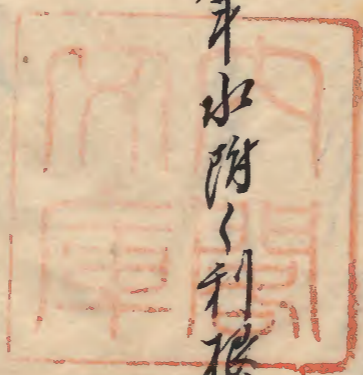 水附く利根
内閣
文庫